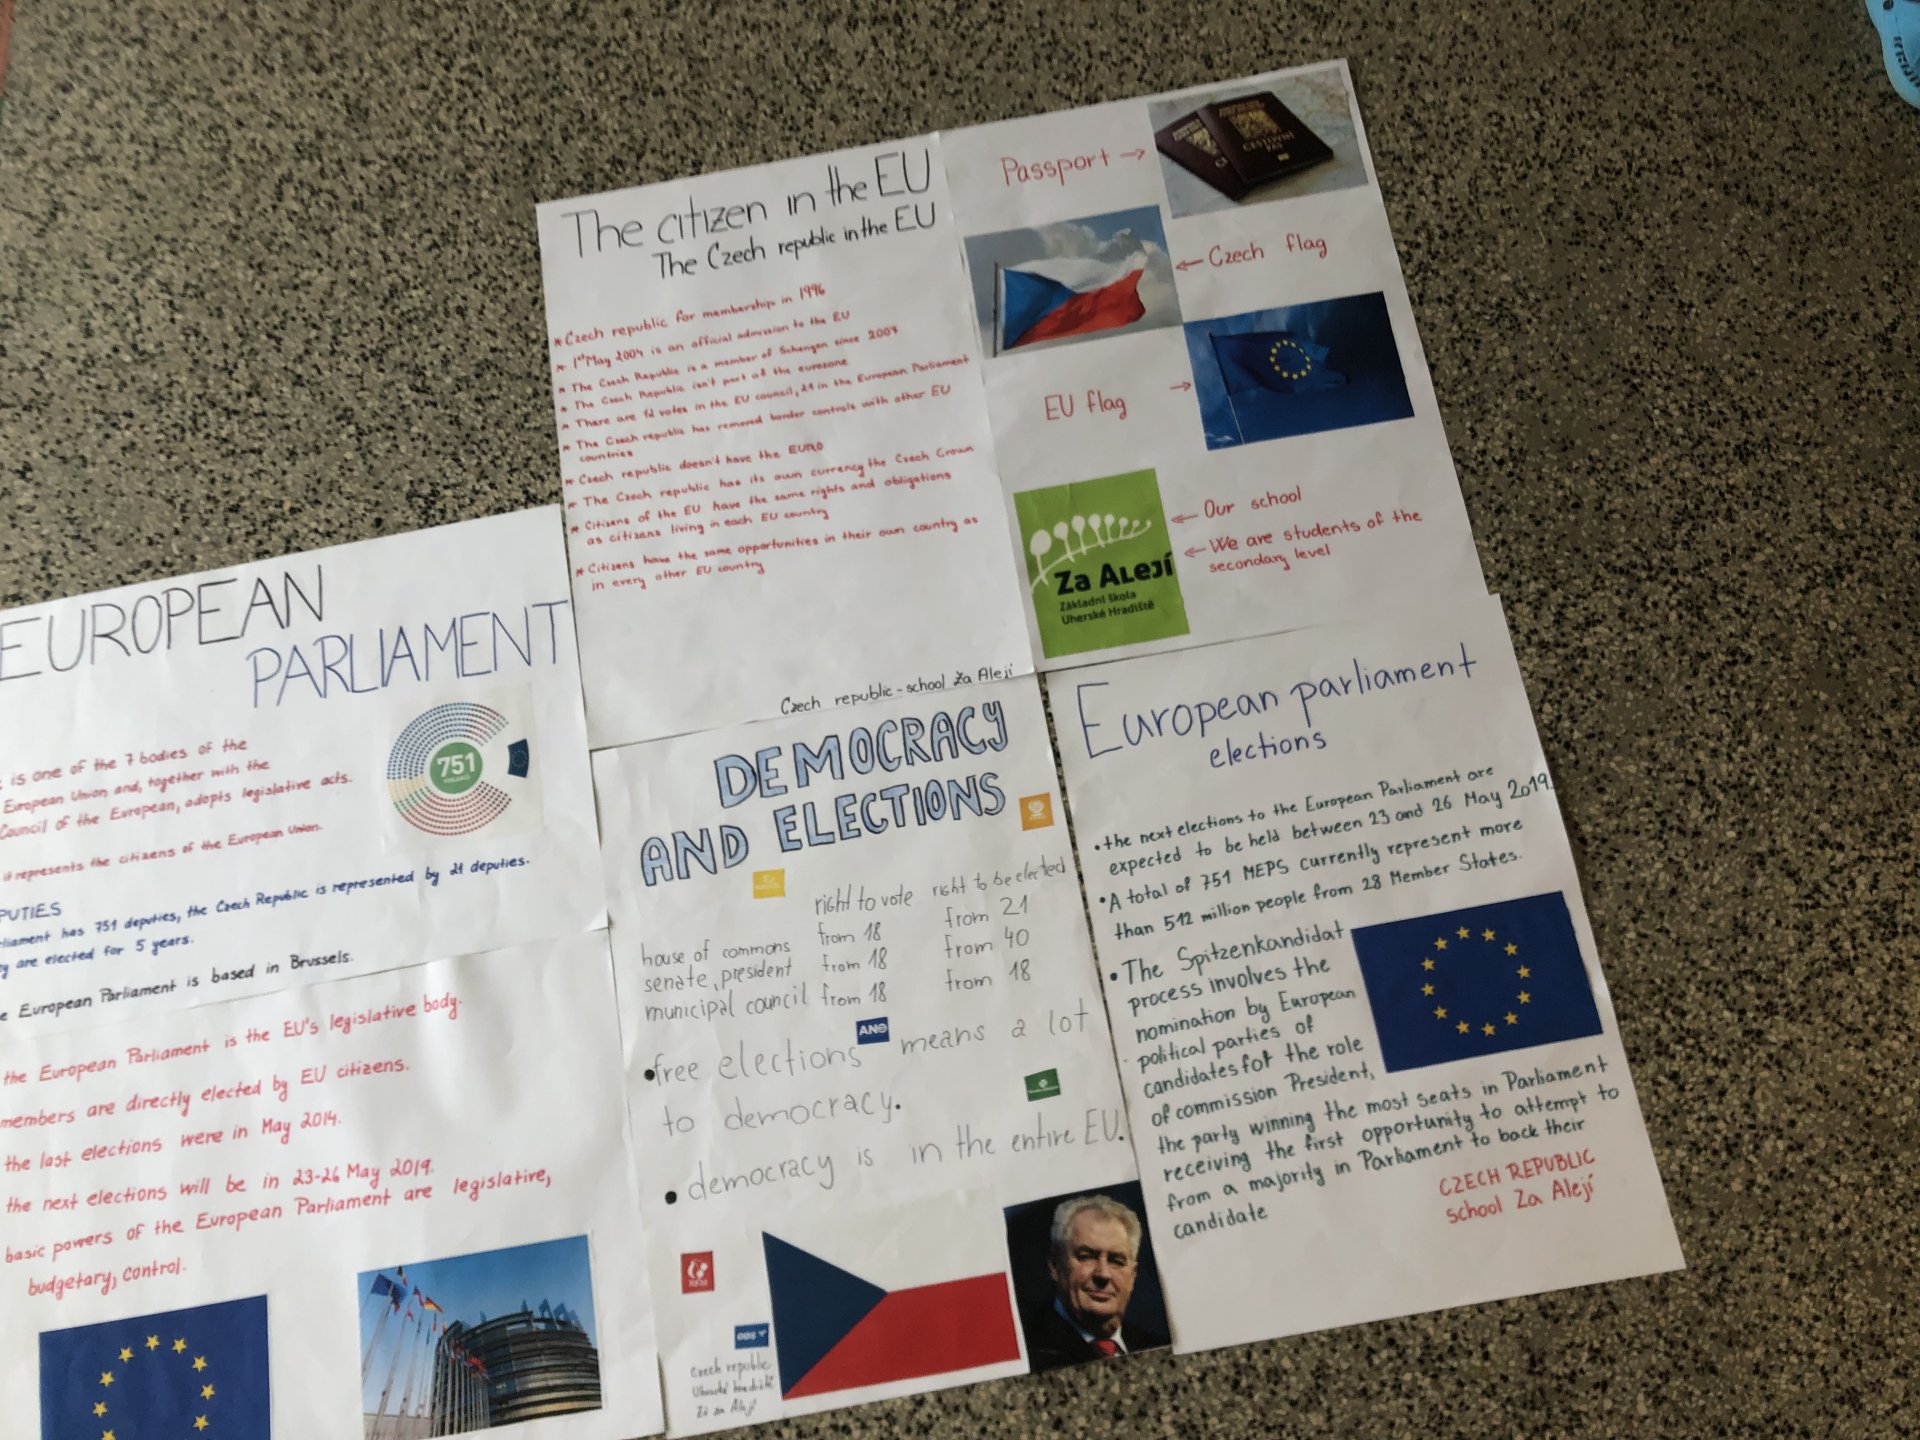 The citizen in the EU
The Czech republic in the EU
* Czech republic for membership in 1996
* 1st May 2004 is an official admission to the EU
* The Czech Republic is a member of Schengen since 2007
* The Czech Republic isn't part of the eurozone
* There are 12 votes in the EU council, 21 in the European Parliament
* The Czech republic has removed border controls with other EU
countries
* Czech republic doesn't have the EURO
* The Czech republic has its own currency the Czech Crown
* Citizens of the EU have the same rights and obligations
as citizens living in each EU country
* Citizens have the same opportunities in their own country as
in every other EU country
Czech republic - school Za Alejí
Passport →
← Czech flag
EU flag →
← Our school
← We are students of the
secondary level
Za ALejí
Základní škola
Uherské Hradiště
EUROPEAN
PARLIAMENT
751
is one of the 7 bodies of the
European Union and, together with the
Council of the European, adopts legislative acts.
it represents the citizens of the European Union.
PUTIES
liament has 751 deputies, the Czech Republic is represented by 21 deputies.
y are elected for 5 years.
e European Parliament is based in Brussels.
the European Parliament is the EU's legislative body.
members are directly elected by EU citizens.
the last elections were in May 2014.
the next elections will be in 23-26 May 2019.
basic powers of the European Parliament are legislative,
budgetary, control.
DEMOCRACY
AND ELECTIONS
right to vote right to be elected
house of commons from 18 from 21
senate, president from 18 from 40
municipal council from 18 from 18
• free elections means a lot
ANO
to democracy.
• democracy is in the entire EU.
Czech republic
Za Alejí
European parliament
elections
• the next elections to the European Parliament are
expected to be held between 23 and 26 May 2019.
• A total of 751 MEPS currently represent more
than 512 million people from 28 Member States.
• The Spitzenkandidat
process involves the
nomination by European
political parties of
candidates for the role
of commission President,
the party winning the most seats in Parliament
receiving the first opportunity to attempt to
from a majority in Parliament to back their
candidate
CZECH REPUBLIC
school Za Alejí